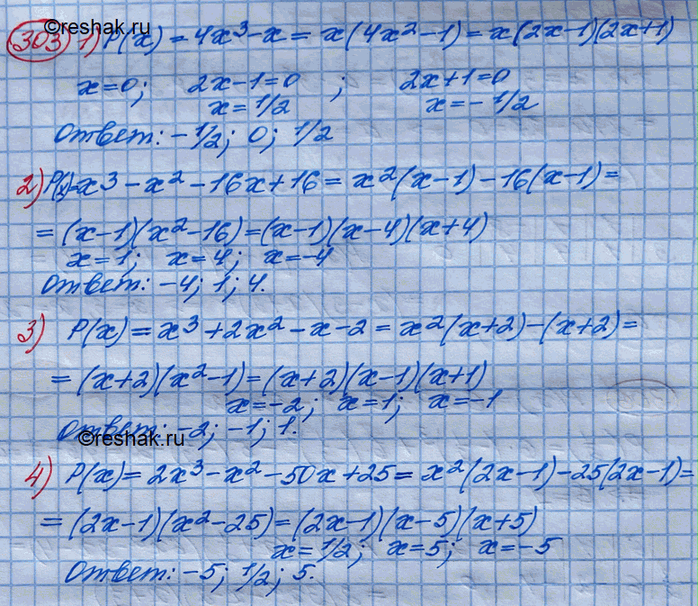 ©reshak.ru
303 1) P(x) = 4x³-x = x(4x²-1) = x(2x-1)(2x+1)
x=0; 2x-1=0 ; 2x+1=0
x=1/2 x=-1/2
Ответ: -1/2; 0; 1/2
2) P(x)=x³-x²-16x+16 = x²(x-1)-16(x-1)=
=(x-1)(x²-16)=(x-1)(x-4)(x+4)
x=1; x=4; x=-4
Ответ: -4; 1; 4.
3) P(x)=x³+2x²-x-2=x²(x+2)-(x+2)=
=(x+2)(x²-1)=(x+2)(x-1)(x+1)
x=-2; x=1; x=-1
Ответ: -2; -1; 1.
©reshak.ru
4) P(x)=2x³-x²-50x+25=x²(2x-1)-25(2x-1)=
=(2x-1)(x²-25)=(2x-1)(x-5)(x+5)
x=1/2; x=5; x=-5
Ответ: -5; 1/2; 5.